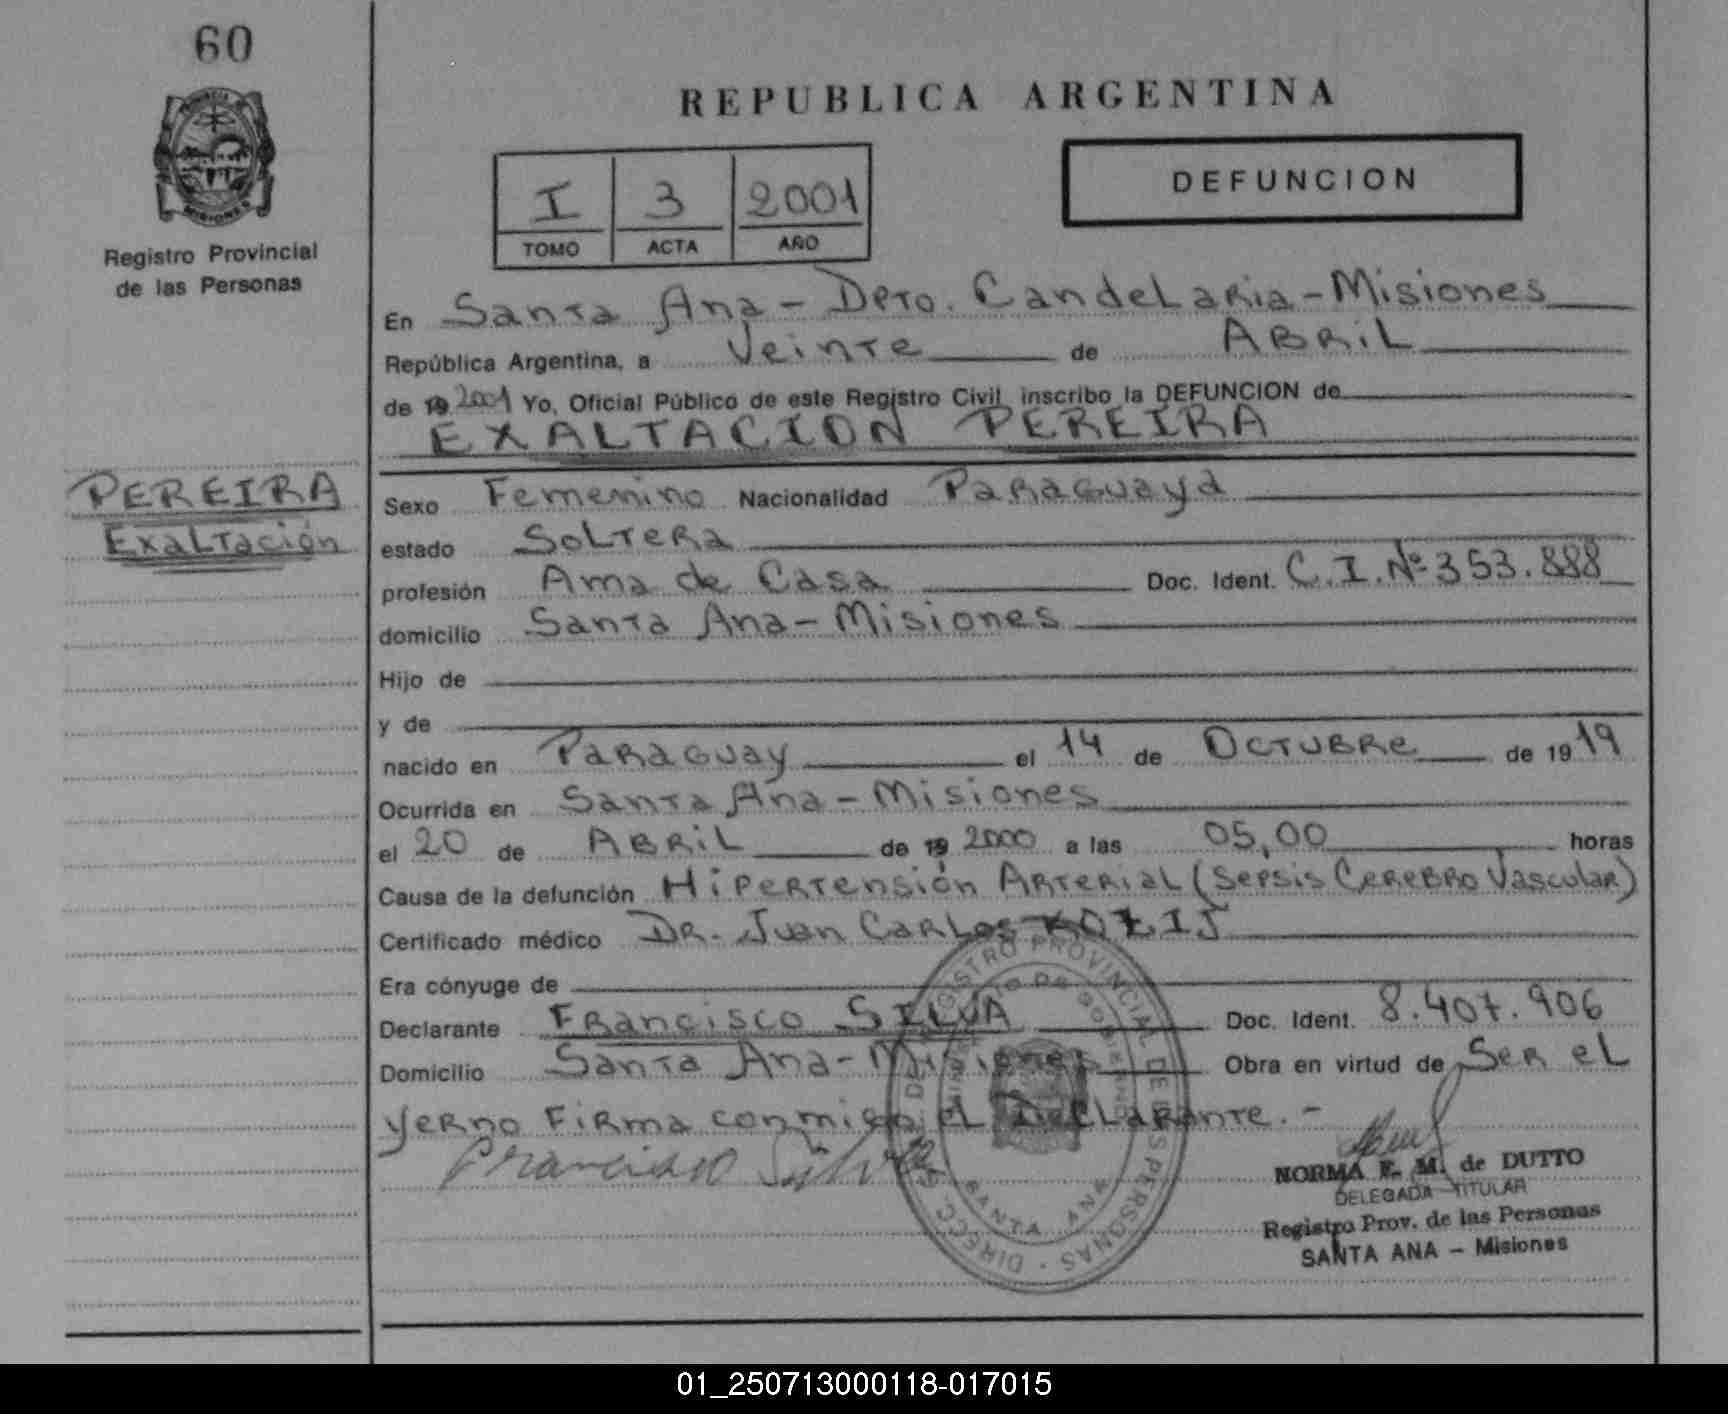 60
PROVINCIA DE
MISIONES
Registro Provincial
de las Personas
PEREIRA
Exaltación
REPUBLICA ARGENTINA
I 3 2001
TOMO ACTA AÑO
DEFUNCION
En Santa Ana - Dpto. Candelaria - Misiones
República Argentina, a Veinte de Abril
de 19 2001 Yo, Oficial Público de este Registro Civil inscribo la DEFUNCION de
EXALTACION PEREIRA
Sexo Femenino Nacionalidad Paraguaya
estado Soltera
profesión Ama de Casa Doc. Ident. C.I. Nº 353.888
domicilio Santa Ana - Misiones
Hijo de
y de
nacido en Paraguay el 14 de Octubre de 1919
Ocurrida en Santa Ana - Misiones
el 20 de Abril de 19 2000 a las 05,00 horas
Causa de la defunción Hipertensión Arterial (Sepsis Cerebro Vascular)
Certificado médico Dr. Juan Carlos
Era cónyuge de
Declarante Francisco SILVA Doc. Ident. 8.407.906
Domicilio Santa Ana - Misiones Obra en virtud de Ser el
yerno Firma conmigo el Declarante. -
Francisco Silva
REGISTRO PROVINCIAL DE LAS PERSONAS
SANTA ANA
NORMA E. M. de DUTTO
DELEGADA TITULAR
Registro Prov. de las Personas
SANTA ANA - Misiones
01_250713000118-017015